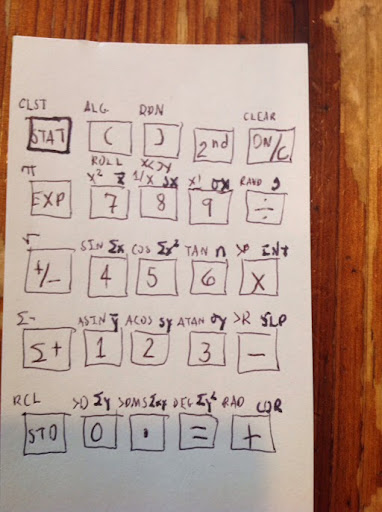 CLST ALG RDN CLEAR
STAT ( ) 2nd ON/C
ROLL X<>y
π x² x̄ 1/X sx X! σx RAND ŷ
EXP 7 8 9 ÷
√ SIN Σx COS Σx² TAN n >P INT
+/- 4 5 6 X
Σ- ASIN ȳ ACOS sy ATAN σy >R SLP
Σ+ 1 2 3 -
RCL >D Σy >DMS Σxy DEG Σy² RAD COR
STO 0 . = +